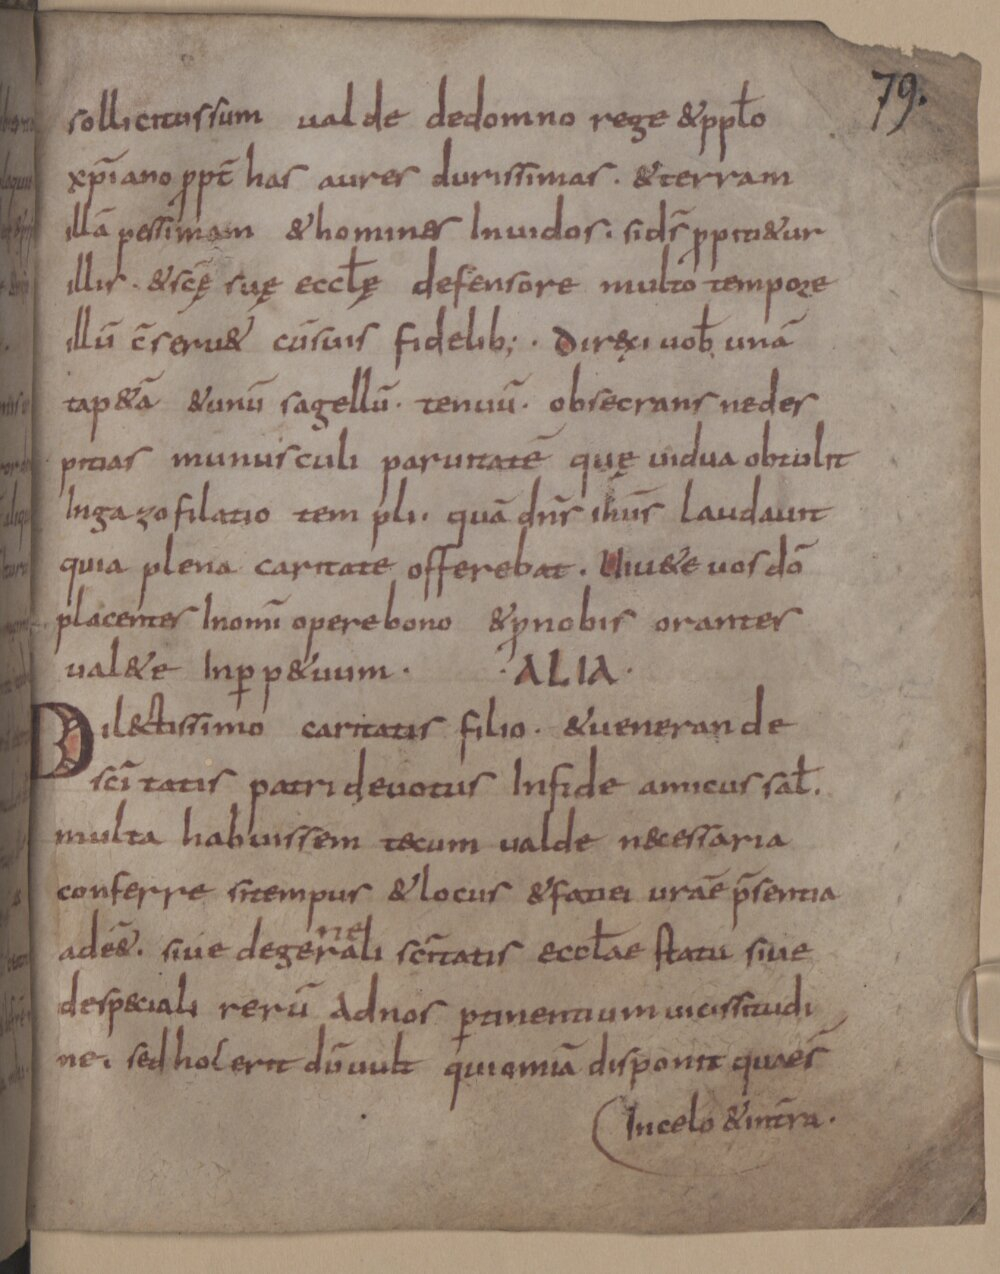 79.
sollicitus sum valde de domno rege & pplo
xp̄iano ꝓpt̄ has aures durissimas. & terram
illā pessimam & homines Inuidos. si ds̄ ꝓpiti&ur
illis. & sc̄ę suę eccłę defensore multo tempore
illū c̄seru& cū suis fidelib;. Dir&xi uob̄ unā
tap&ā & unū sagellū. tenuū. obsecrans ne des
pitias munusculi paruitatē quę uidua obtulit
In gazofilatio templi. quā dn̄s ihūs laudauit
quia plena caritate offerebat. Uiu&e uos dō
placentes In omī opere bono & ꝓ nobis orantes
ual&e In ꝑp&uum. · ALIA ·
Dil&tissimo caritatis filio. & uenerande
scītatis patri deuotus In fide amicus sał.
multa habuissem tecum ualde necessaria
conferre si tempus & locus & faciei uraē p̄sentia
adēē&. siue de generali scītatis eccłae statu siue
de speciali rerū ad nos ꝑtinentium uicissitudi
ne. sed hoc erit dū uult qui omīa disponit quae s̄
In celo & in t̄ra.